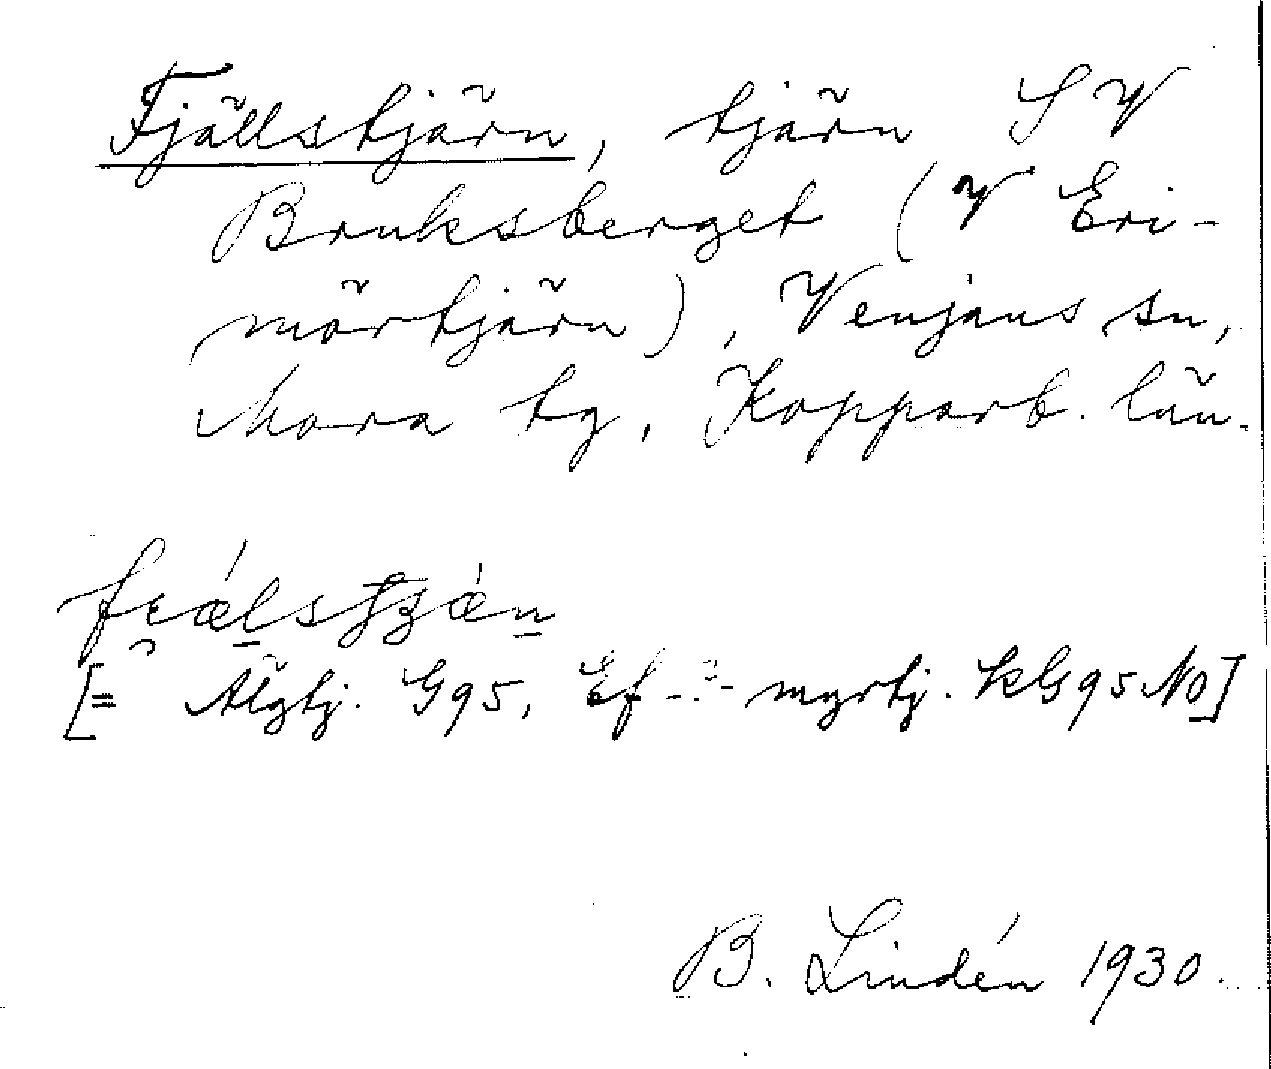 Fjällstjärn, tjärn SV
Bruksberget (V Eri-
mörtjärn), Venjans sn,
Mora tg, Kopparb. län.
[= Älgtj. G95, Ef-?-myrtj. KG95NO]
B. Lindén 1930.